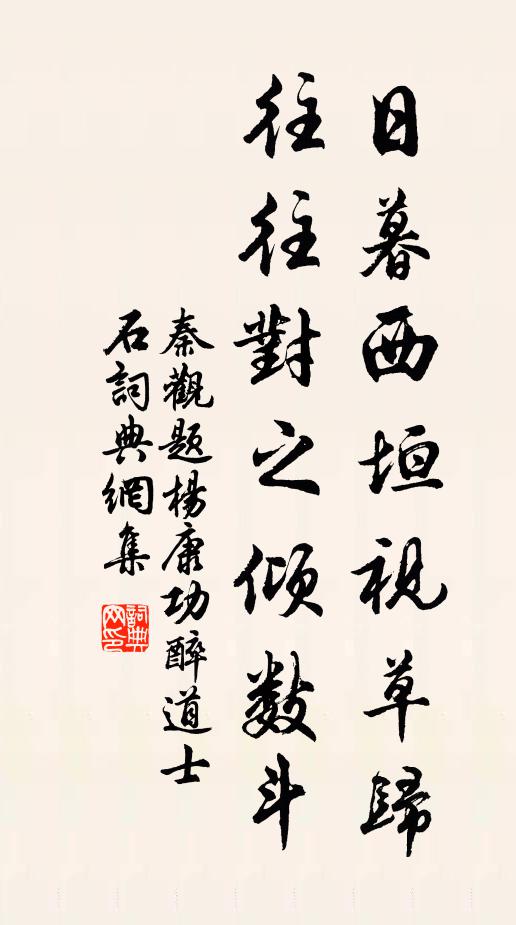 日暮西垣視草歸
往往對之傾數斗
秦觀題楊康功醉道士
石詞典網集
詞典網印